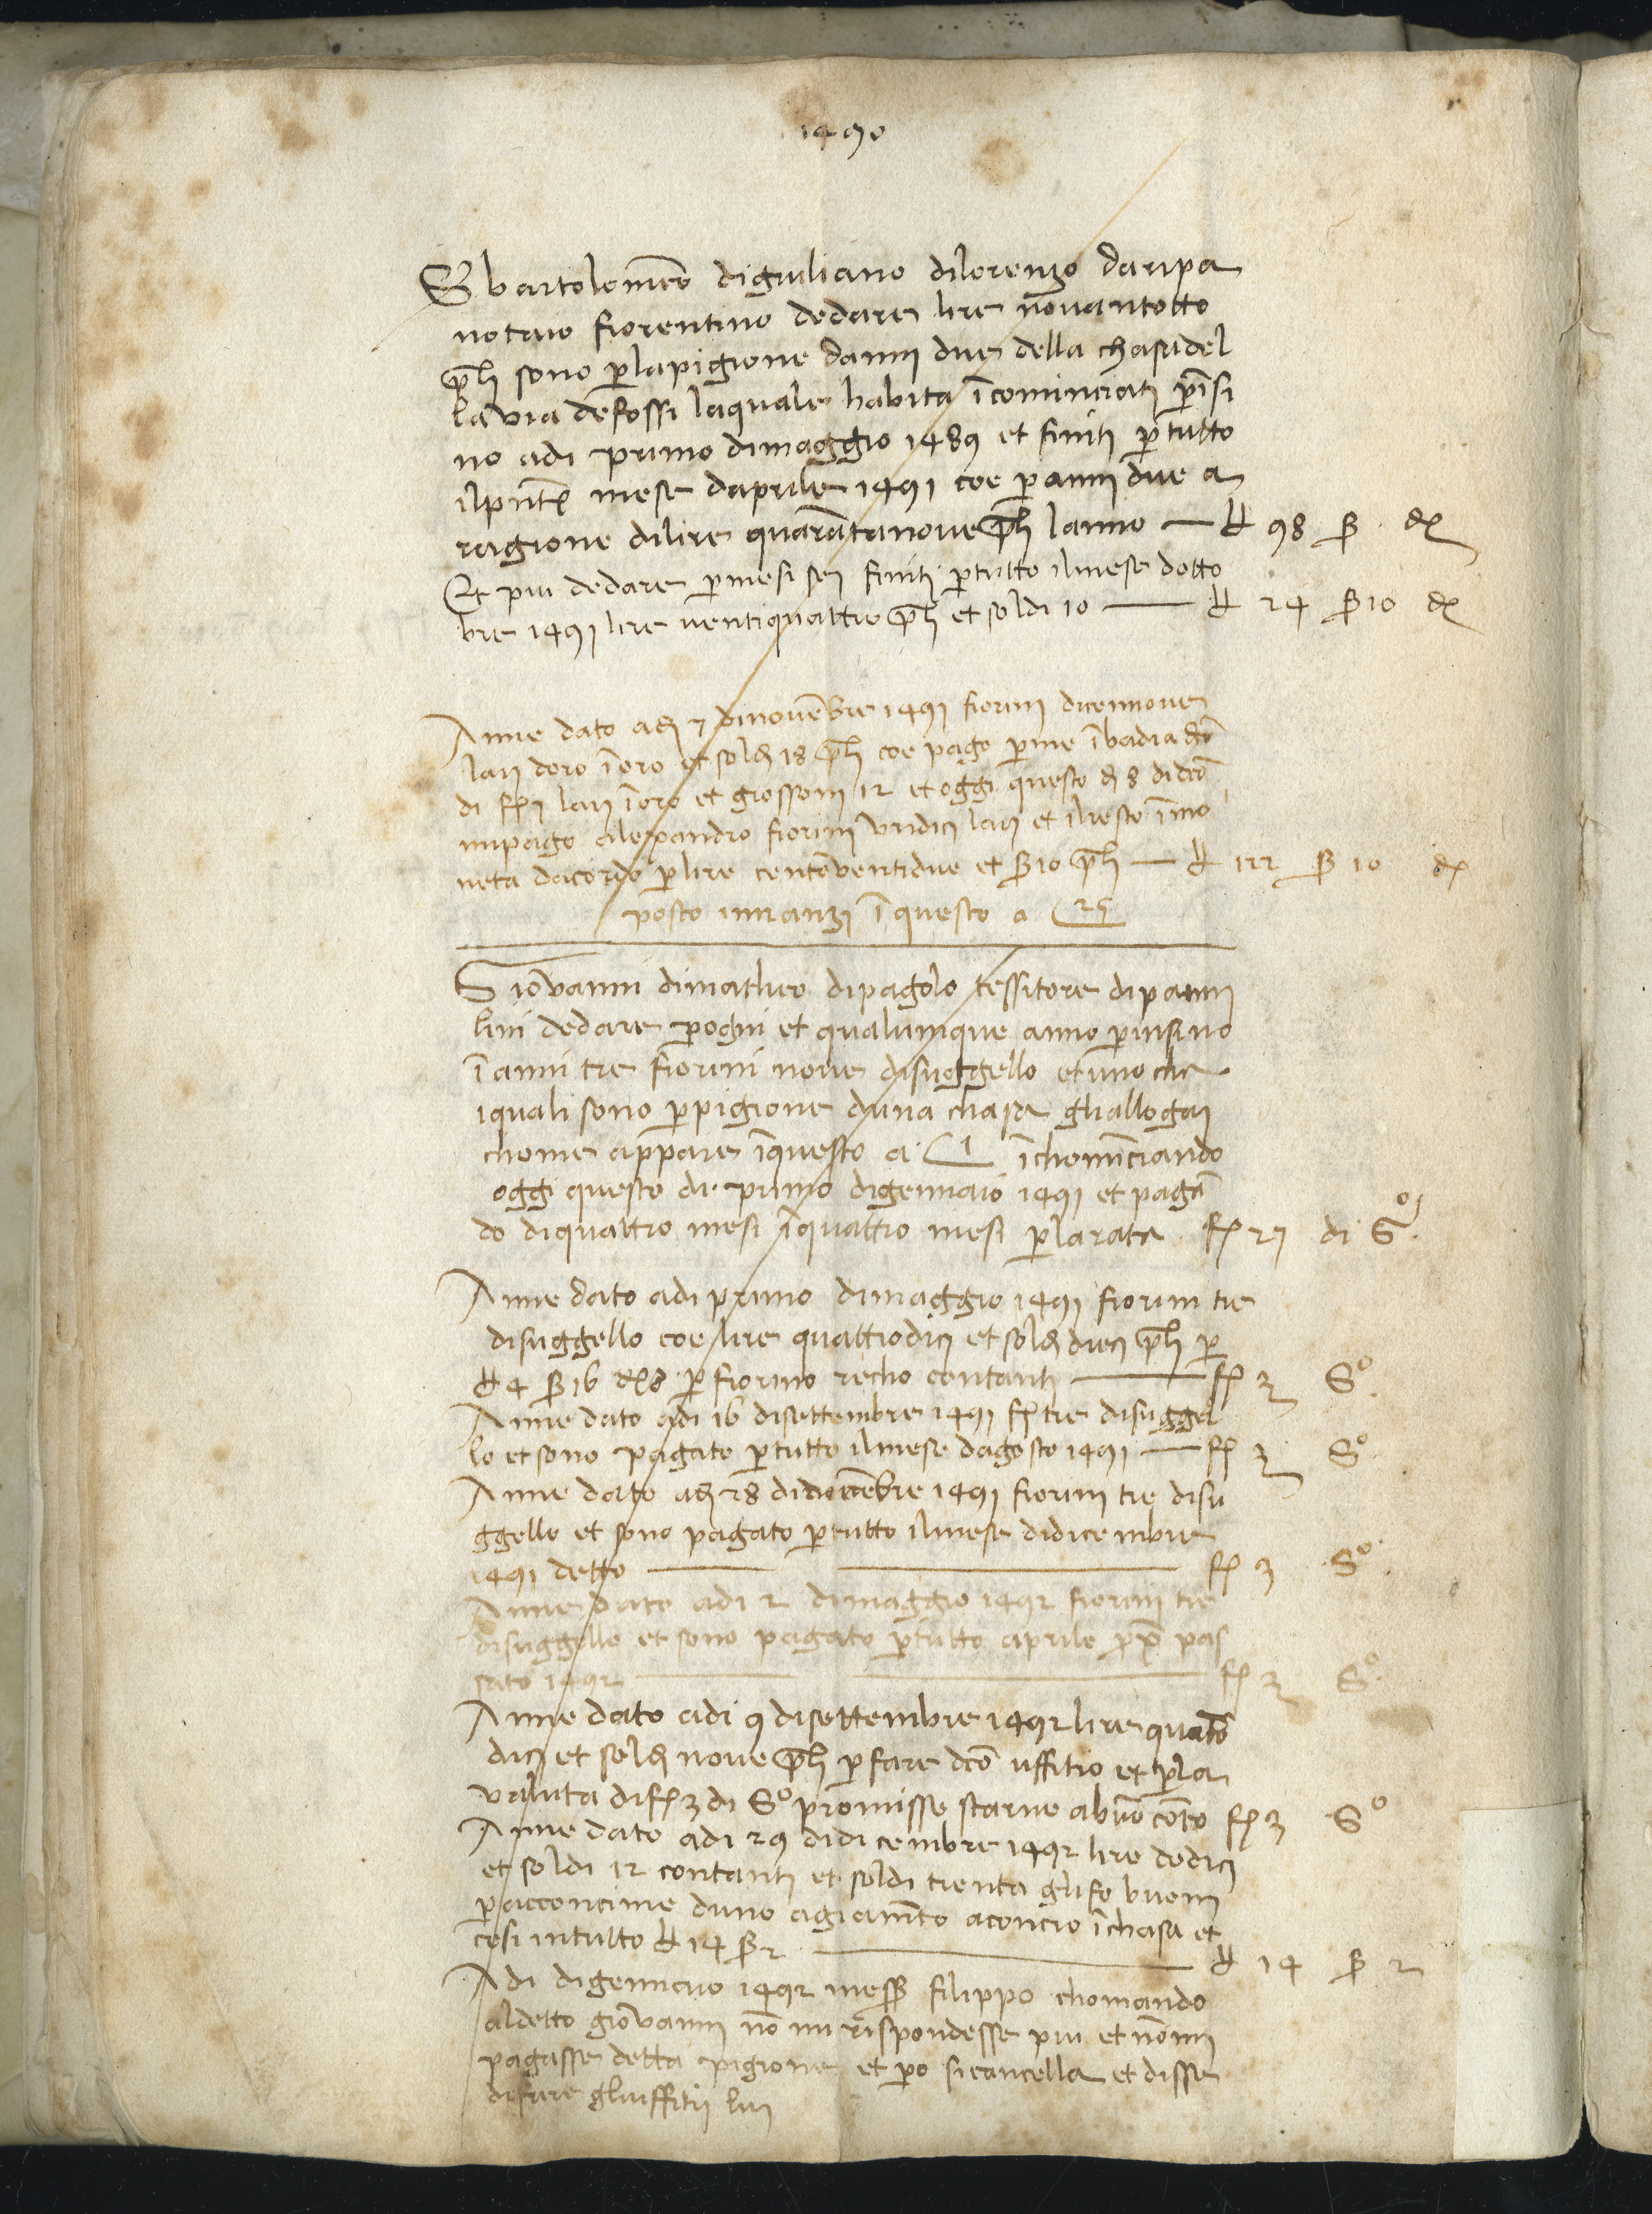 1490
S bartolomeo digiuliano dilorenzo daripa
notaio fiorentino dedare lire novantotto
p̄li sono p̱lapigione danni due della chasa del
la via de fossi laquale habita ī cominciati p̱ īsi
no adi primo dimaggio 1489 et finiti p̱ tutto
ilpn̄te mese daprile 1491 coe p̱ anni due a
ragione dilire quarātanove p̄li lanno — ₶ 98 ß dꝭ
Et piu dedare p̱ mesi sei finiti p̱ tutto ilmese dotto
bre 1491 lire ventiquattro p̄li et soldi 10 — ₶ 24 ß 10 dꝭ
Anne dato adi 7 dinovēbre 1491 fiorini dicennove
lari doro ī oro et soldi 18 p̄li coe pago p̱ me ī badia
di fꝭ lari ī oro et grossoni 12 et oggi questo di 8 di dcō
mi pago alexandro fiorini undici lari et ilresto ī mo
neta dacordo p̱ lire centoventidue et ß 10 p̄li — ₶ 122 ß 10 dꝭ
posto innanzi ī questo a c 25
Giovanni dimatheo dipagolo tessitore dipanni
lini dedare p̱ ogni et qualunque anno p̱ insino
ī anni tre fiorini nove disuggello et uno cha
iquali sono p̱ pigione duna chasa gliallogai
chome appare ī questo a c 1 īchominciando
oggi questo di primo digennaio 1491 et pagā
do diquattro mesi ī quattro mesi p̱ larata fꝭ 27 di Sº
Anne dato adi primo dimaggio 1491 fiorini tre
disuggello coe lire quattrodici et soldi dieci p̄li p̱
₶ 4 ß 16 dꝭ 8 p̱ fiorino recho contanti — fꝭ 3 Sº
Anne dato adi 16 disettembre 1491 fꝭ tre disuggel
lo et sono pagato p̱ tutto ilmese dagosto 1491 — fꝭ 3 Sº
Anne dato adi 28 di dicēbre 1491 fiorini tre disu
ggello et sono pagato p̱ tutto ilmese didicembre
1491 detto — fꝭ 3 Sº
Anne dato adi 2 dimaggio 1492 fiorini tre
disuggello et sono pagato p̱ tutto aprile px̄ pas
sato 1492 — fꝭ 3 Sº
Anne dato adi 9 disettembre 1492 lire quatto
dici et soldi nove p̄li p̱ fare dcō uffitio et p̱ la
valuta di fꝭ 3 di Sº promisse starne a buō cōto fꝭ 3 Sº
Anne dato adi 29 didicembre 1492 lire dodici
et soldi 12 contanti et soldi trenta gli fo buoni
p̱ acconcime duno agiamēto aconcio ī chasa et
cosi intutto ₶ 14 ß 2 — ₶ 14 ß 2
Adi digennaio 1492 mess̄ filippo chomando
aldetto giovanni nō mi rispondesse piu et nō mi
pagasse detta pigione et p̱o si cancella et disse
difare gliuffitii lui